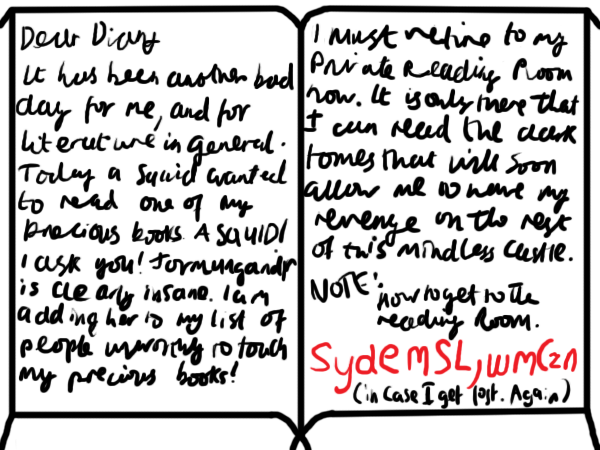 Dear Diary
It has been another bad
day for me, and for
literature in general.
Today a squid wanted
to read one of my
precious books. A SQUID!
I ask you! Jormungandr
is clearly insane. I am
adding her to my list of
people unworthy to touch
my precious books!
I must retire to my
Private Reading Room
now. It is only there that
I can read the dark
tomes that will soon
allow me to have my
revenge on the rest
of this mindless castle.
NOTE: how to get to the
reading Room.
SydemSL,wmCzn
(in case I get lost. Again)